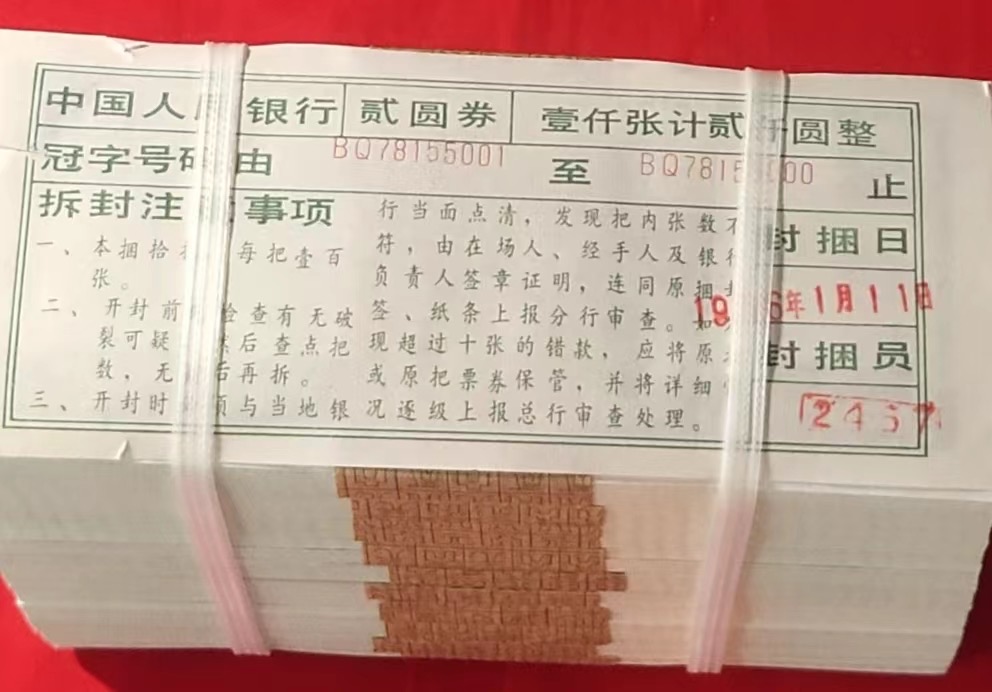 中国人 银行 贰圆券 壹仟张计贰 圆整
冠字号 由 BQ78155001 至 BQ7815 00 止
拆封注 事项
一、本捆拾 每把壹百
张。
二、开封前 检查有无破
裂可疑 然后查点把
数，无 后再拆。
三、开封时 与当地银
行当面点清，发现把内张数不
符，由在场人、经手人及银行
负责人签章证明，连同原捆封
签、纸条上报分行审查。如
现超过十张的错款，应将原
或原把票券保管，并将详细
况逐级上报总行审查处理。
封捆日
19 6年1月11日
封捆员
2457